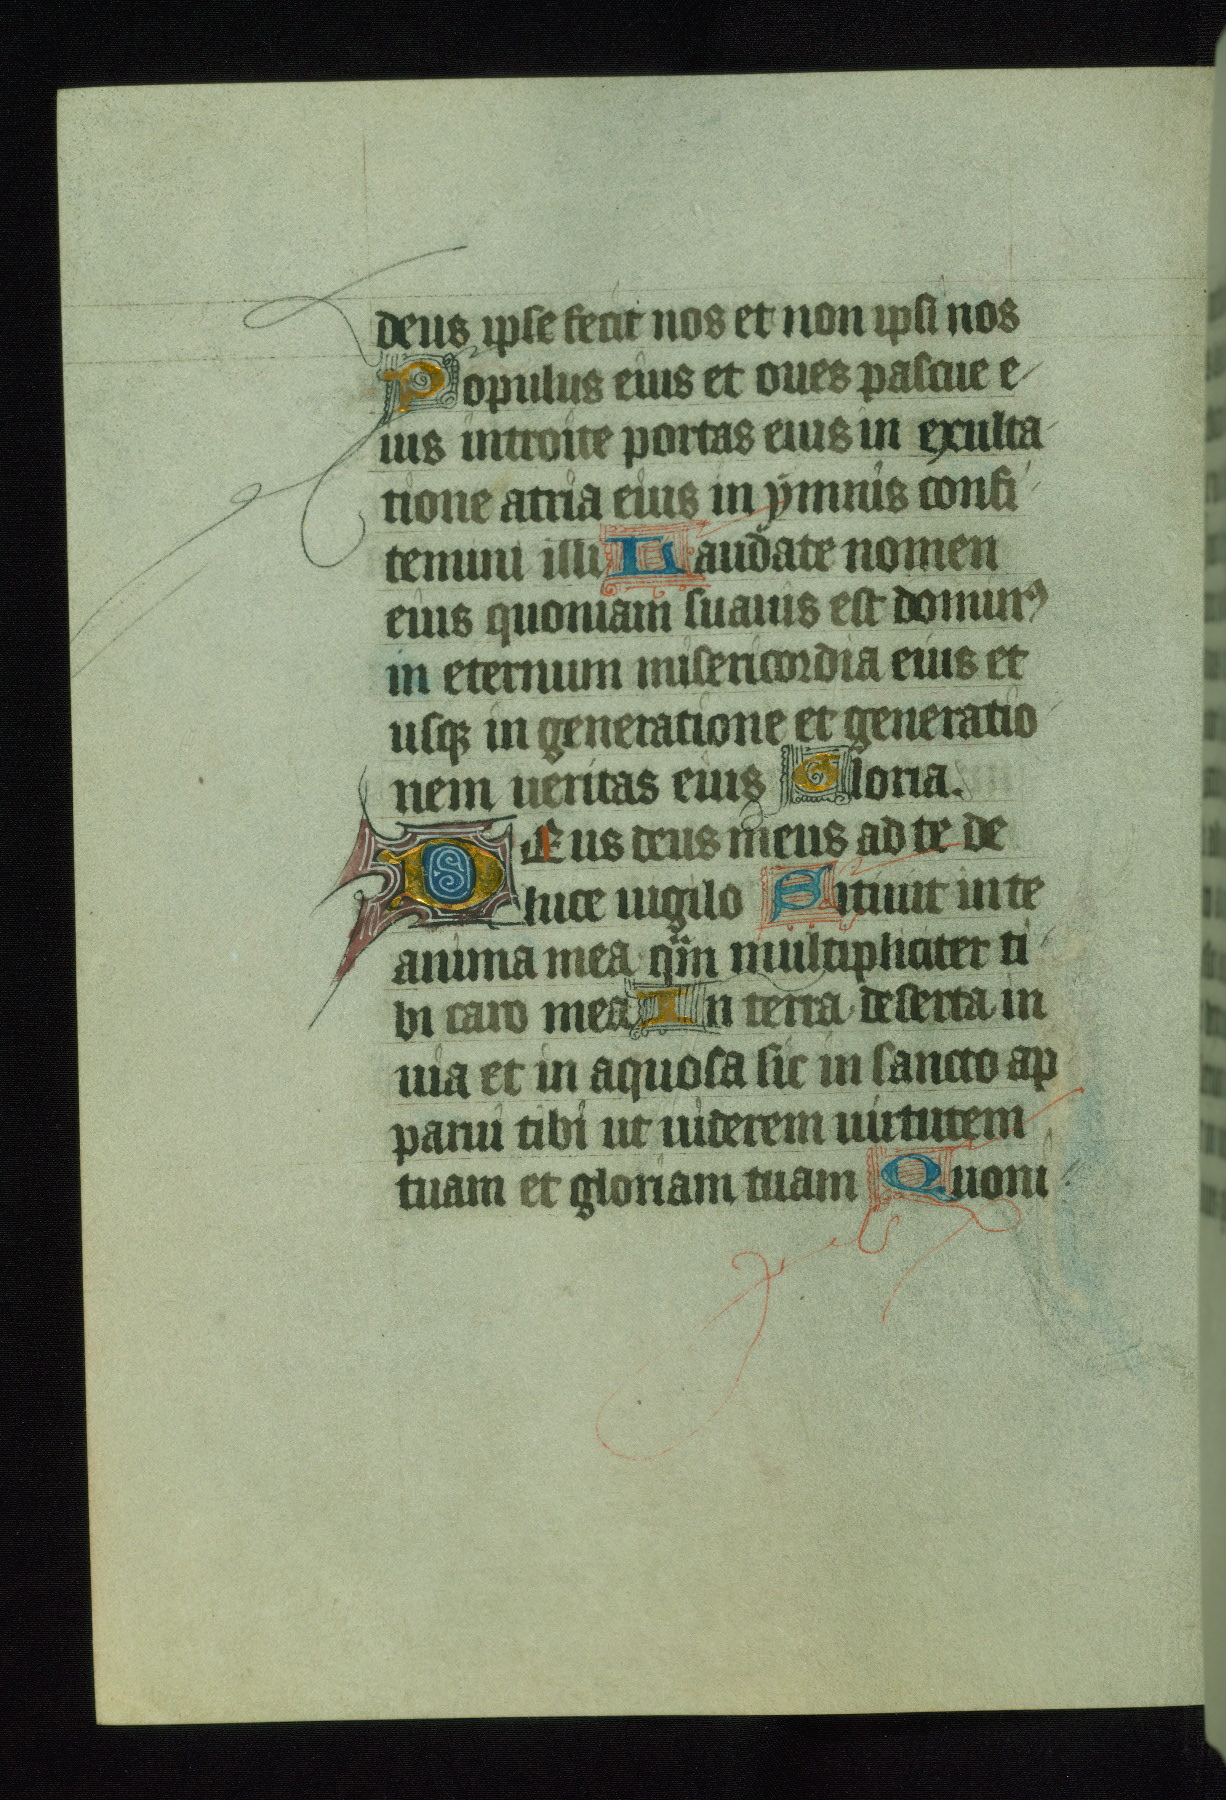 deus ipse fecit nos et non ipsi nos
Populus eius et oues pascue e
ius introite portas eius in exulta
tione atria eius in ymnis confi
temini illi Laudate nomen
eius quoniam suauis est dominꝰ
in eternum misericordia eius et
usqꝫ in generatione et generatio
nem ueritas eius Gloria.
DEus deus meus ad te de
luce uigilo Sitiuit in te
anima mea qm̃ multipliciter ti
bi caro mea In terra deserta in
uia et in aquosa sic in sancto ap
parui tibi ut uiderem uirtutem
tuam et gloriam tuam Quoni